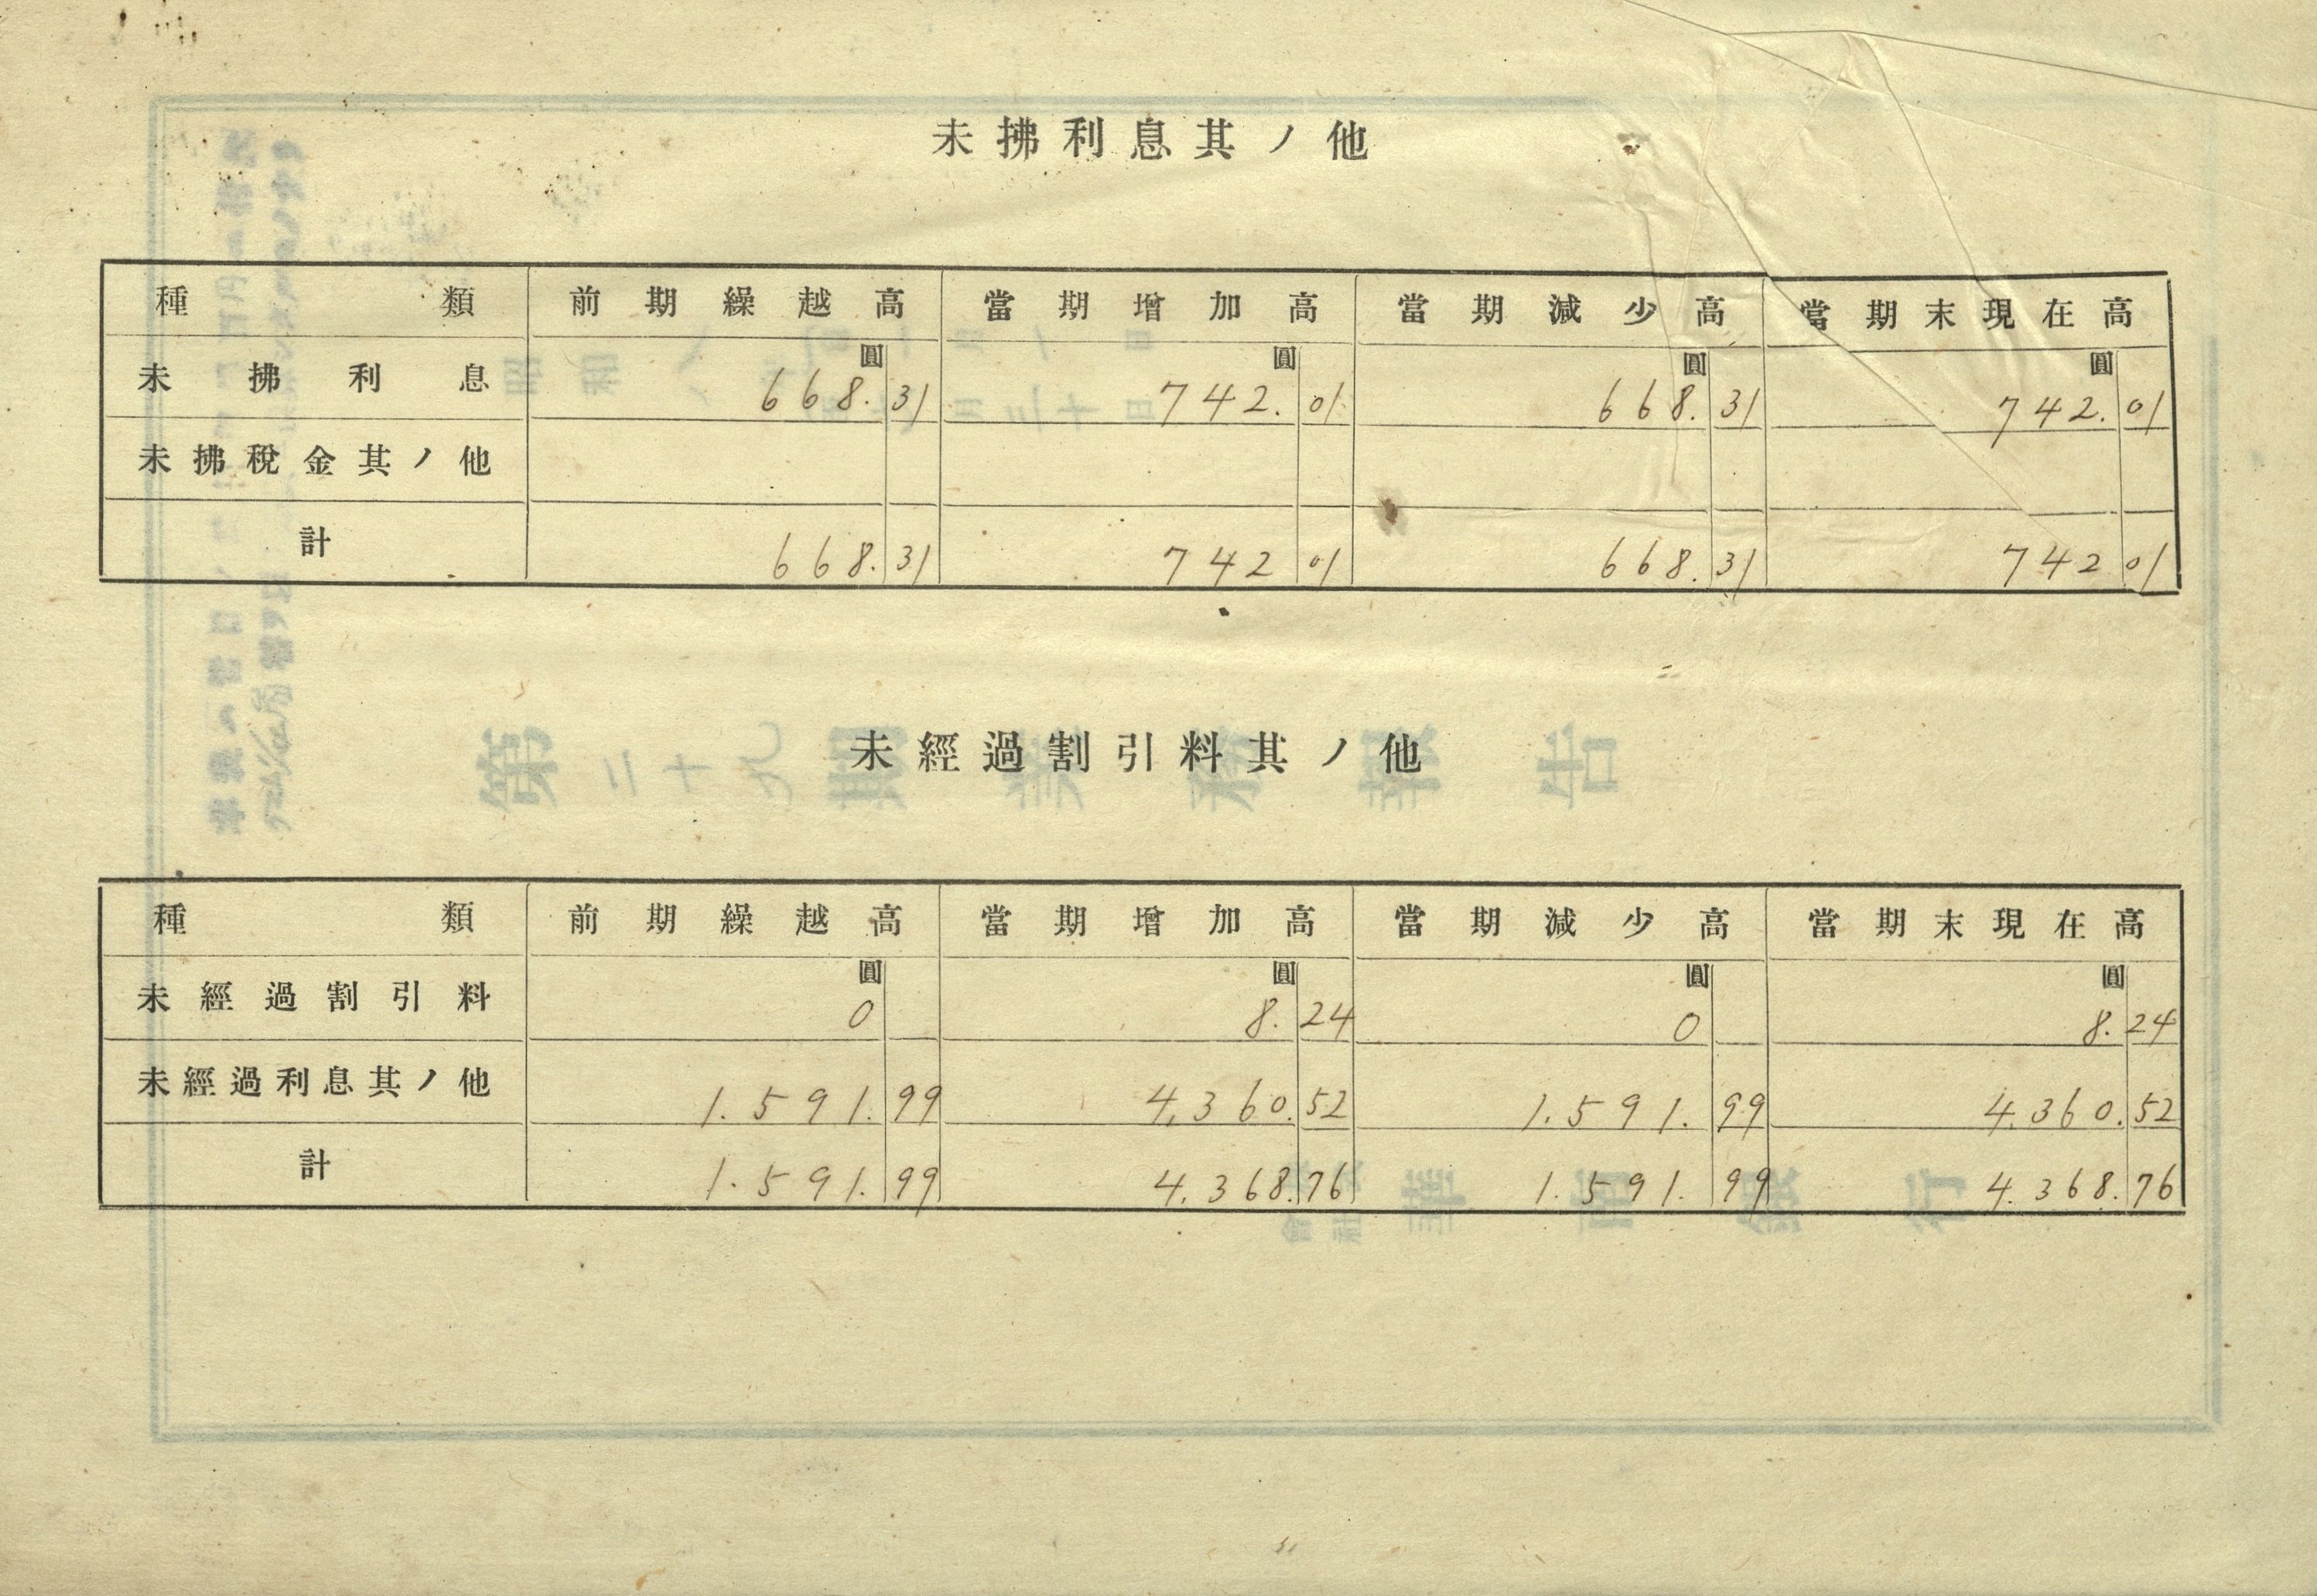 未拂利息其ノ他
種類 前期繰越高 當期增加高 當期減少高 當期末現在高
圓 圓 圓 圓
未拂利息 668. 31 742. 01 668. 31 742. 01
未拂稅金其ノ他
計 668. 31 742 01 668. 31 742 01
未經過割引料其ノ他
種類 前期繰越高 當期增加高 當期減少高 當期末現在高
圓 圓 圓 圓
未經過割引料 0 8. 24 0 8. 24
未經過利息其ノ他 1.591. 99 4.360. 52 1.591. 99 4.360. 52
計 1.591. 99 4.368. 76 1.591. 99 4.368. 76